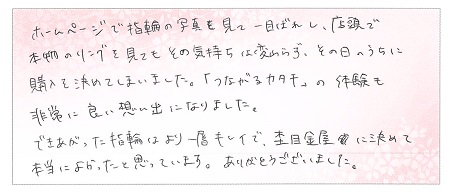 ホームページで指輪の写真を見て一目ぼれし、店頭で
本物のリングを見てもその気持ちは変わらず、その日のうちに
購入を決めてしまいました。「つながるカタチ」の体験も
非常に良い想い出になりました。
できあがった指輪はより一層キレイで、杢目金屋に決めて
本当によかったと思っています。ありがとうございました。